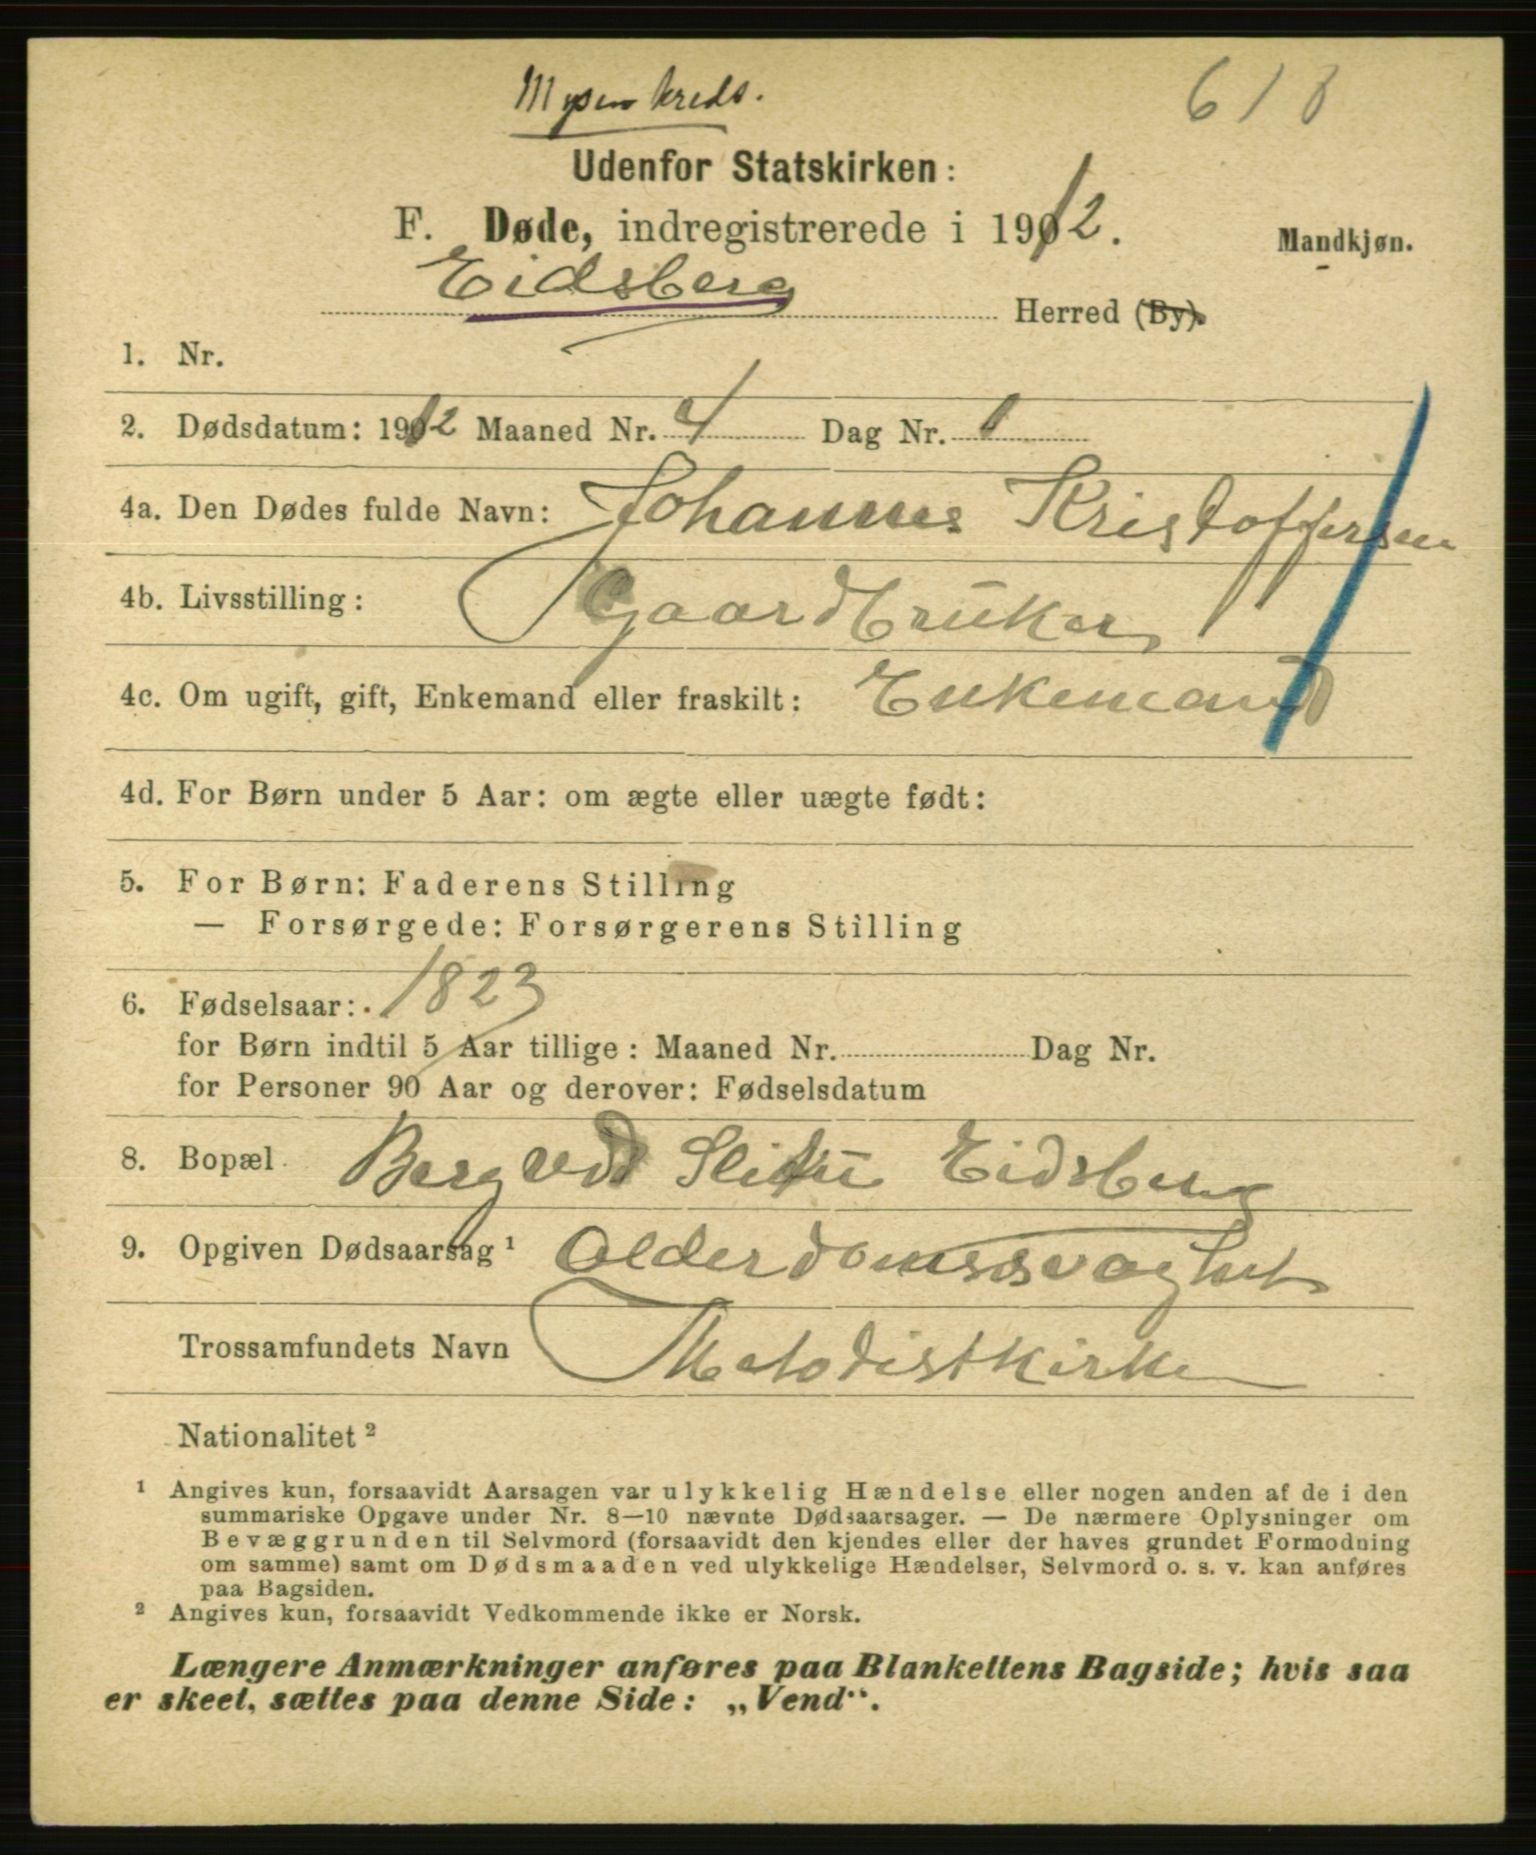 Mysen kreds.
618
Udenfor Statskirken:
F. Døde, indregistrerede i 1912.
Mandkjøn.
Eidsberg Herred (By).
1. Nr.
2. Dødsdatum: 1912 Maaned Nr. 4 Dag Nr. 1
4a. Den Dødes fulde Navn: Johannes Kristoffersen
4b. Livsstilling: Gaardbruker
4c. Om ugift, gift, Enkemand eller fraskilt: Enkemand
4d. For Børn under 5 Aar: om ægte eller uægte født:
5. For Børn: Faderens Stilling
— Forsørgede: Forsørgerens Stilling
6. Fødselsaar: 1823
for Børn indtil 5 Aar tillige: Maaned Nr. Dag Nr.
for Personer 90 Aar og derover: Fødselsdatum
8. Bopæl Berg ved Slitu Eidsberg
9. Opgiven Dødsaarsag ¹ Alderdomssvaghet
Trossamfundets Navn Metodistkirken
Nationalitet ²
¹ Angives kun, forsaavidt Aarsagen var ulykkelig Hændelse eller nogen anden af de i den
summariske Opgave under Nr. 8—10 nævnte Dødsaarsager. — De nærmere Oplysninger om
Bevæggrunden til Selvmord (forsaavidt den kjendes eller der haves grundet Formodning
om samme) samt om Dødsmaaden ved ulykkelige Hændelser, Selvmord o. s. v. kan anføres
paa Bagsiden.
² Angives kun, forsaavidt Vedkommende ikke er Norsk.
Længere Anmærkninger anføres paa Blankettens Bagside; hvis saa
er skeet, sættes paa denne Side: „Vend“.